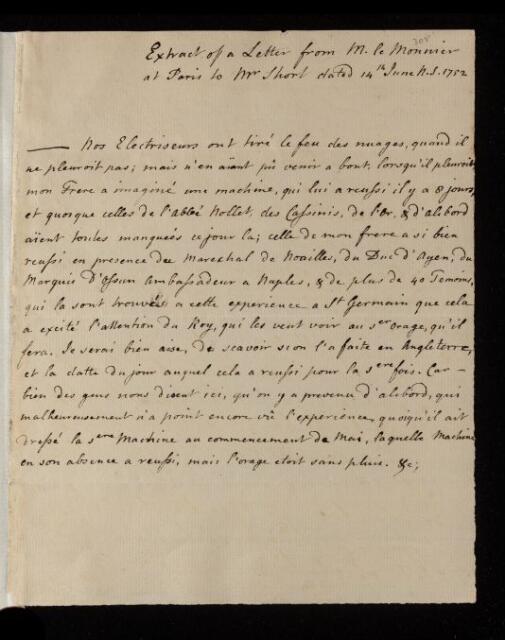 308
Extract of a Letter from M. le Monnier
at Paris to Mr Short dated 14th June N.S. 1752
— Nos Electriseurs ont tiré le feu des nuages, quand il
ne pleuroit pas; mais n'en aïant pû venir a bout, lorsqu'il pleuroit
mon Frere a imaginé une machine, qui lui a reussi il y a 8 jours,
et quoique celles de l'abbé Nollet, des Cassinis, de l'Or, & d'alibord
aïent toutes manquées ce jour la; celle de mon frere a si bien
reussi en presence du Marechal de Noailles, du Duc d'Ayen, du
Marquis D'Ossun Ambassadeur a Naples, & de plus de 40 Temoins,
qui la sont trouvés a cette experience a St Germain que cela
a excité l'attention du Roy, qui les veut voir au 1er orage, qu'il
fera. Je serai bien aise, de scavoir si on l'a faite en Angleterre,
et la datte du jour auquel cela a reussi pour la 1ere fois. Car
bien des gens nous disent ici, qu'on y a prevenu d'alibord, qui
malheureusement n'a point encore vû l'experience, quoiqu'il ait
dressé la 1ere Machine au commencement de Mai, laquelle Machine
en son absence a reussi, mais l'orage etoit sans pluie. &c;